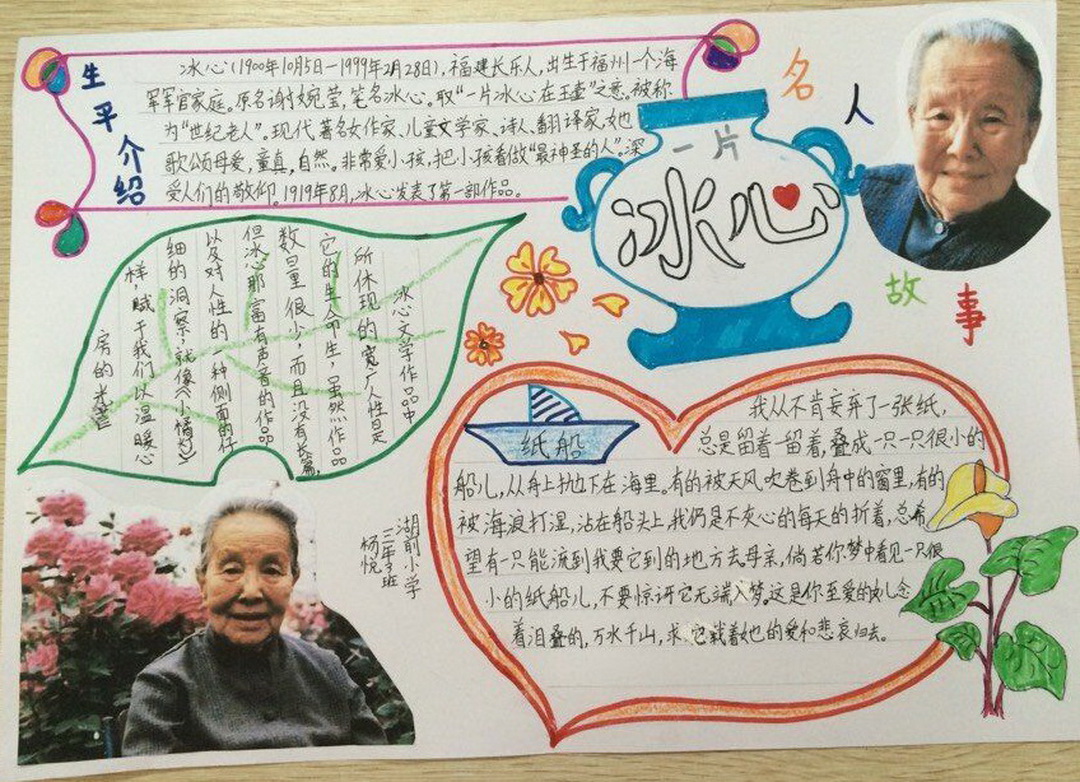 生平介绍
冰心(1900年10月5日-1999年2月28日),福建长乐人,出生于福州一个海
军军官家庭。原名谢婉莹,笔名冰心。取“一片冰心在玉壶”之意。被称
为“世纪老人”。现代著名女作家、儿童文学家、诗人、翻译家,她
歌颂母爱,童真,自然。非常爱小孩,把小孩看做“最神圣的人”。深
受人们的敬仰。1919年8月,冰心发表了第一部作品。
一片
冰心
名人
故事
冰心文学作品中
所休现的宽广人性是
它的生命生,虽然作品
数量很小,而且没有长篇,
但冰心那富有声音的作品
以及对人性的一种侧面的仔
细的洞察,就像《小橘灯》
样,赋于我们以温暖心
房的光芒
纸船
我从不肯妄弃了一张纸,
总是留着一留着,叠成一只一只很小的
船儿,从舟上抛下在海里。有的被天风吹卷到舟中的窗里,有的
被海浪打湿,沾在船头上,我仍是不灰心的每天的折着,总希
望有一只能流到我要它到的地方去母亲,倘若你梦中看见一只很
小的纸船儿,不要惊讶它无端入梦。这是你至爱的女儿念
着泪叠的,万水千山,求它载着她的爱和悲哀归去。
湖前小学
三年3班
杨悦